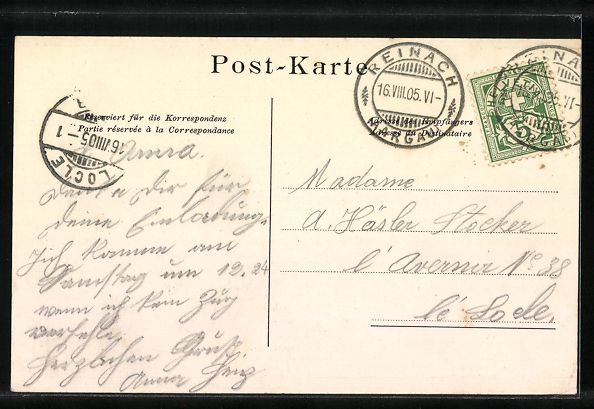 Post-Karte
REINACH
16.VIII.05.VI-
AARGAU
Reserviert für die Korrespondenz
Partie réservée à la Correspondance
Adresse des Empfängers
Adresse du Destinataire
LOCLE
16 VIII 05-1
HELVETIA
5
L. Anna.
Danke Dir für
deine Einladung.
Ich komme am
Samstag um 12.24
wenn ich kein Zug
verfehle.
Herzlichen Gruss
Anna
Madame
A. Häsler Stocker
l'Avenir No 38
le Locle.